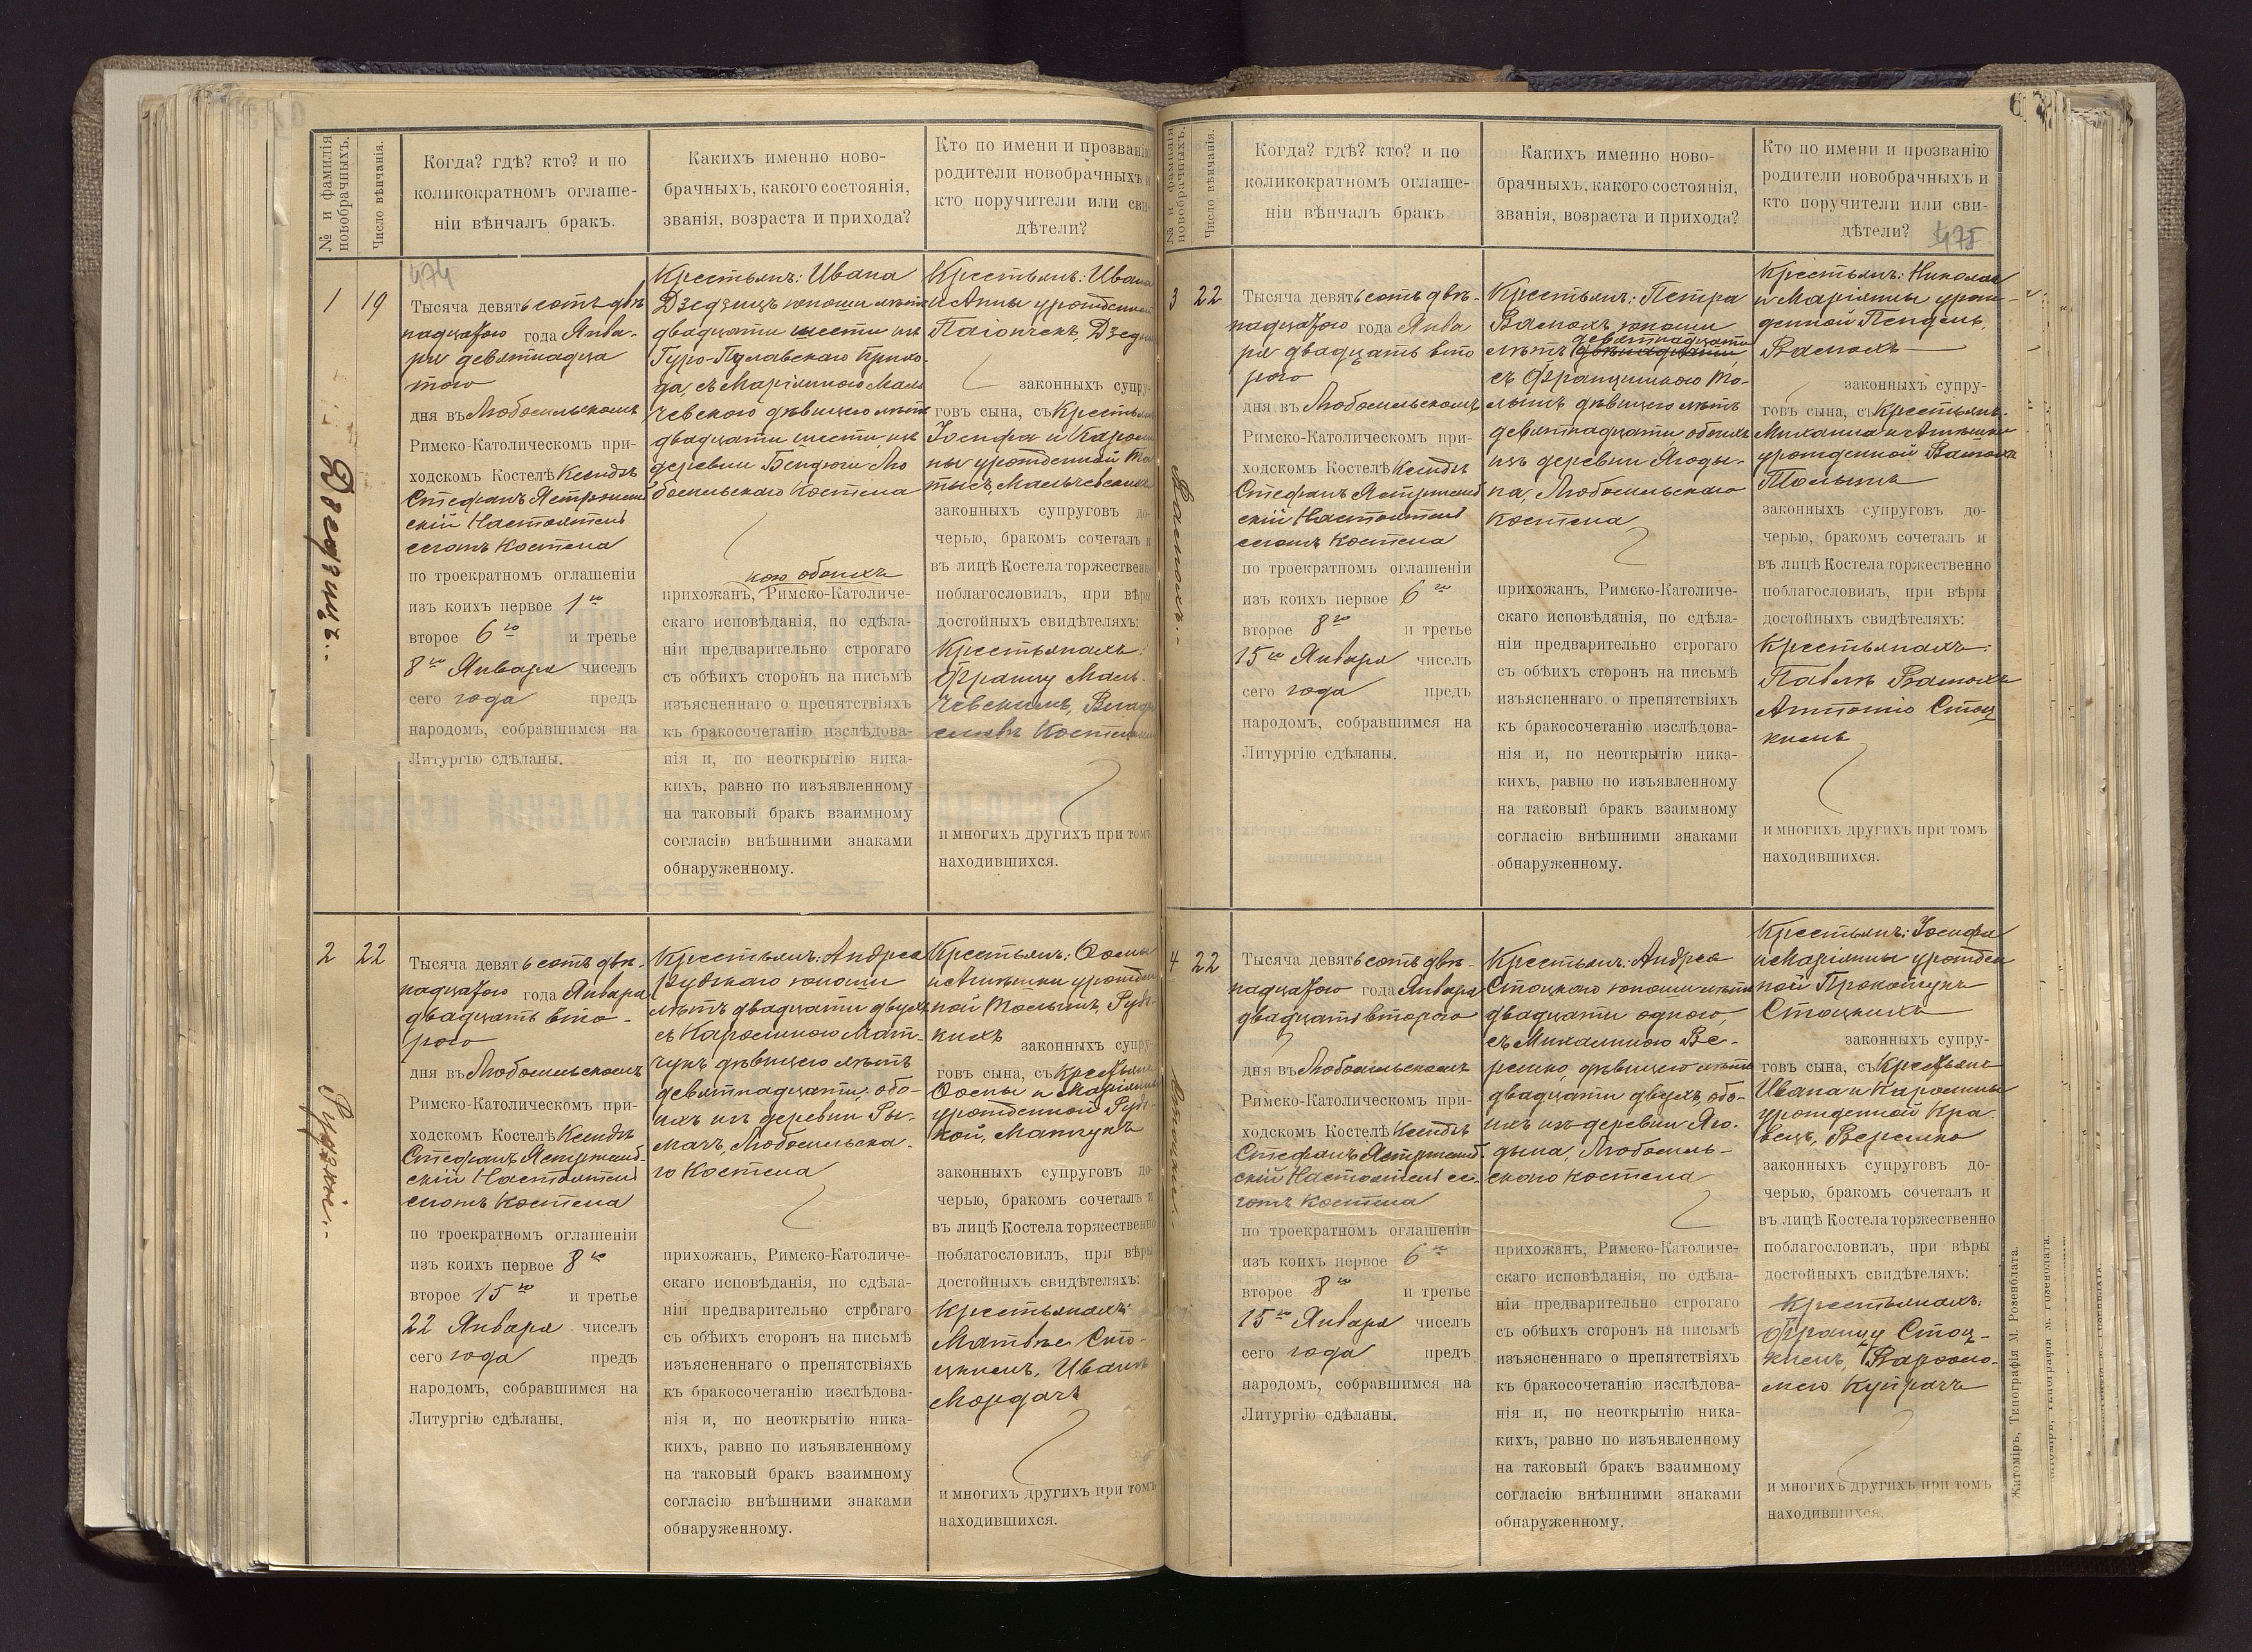 № и фамилія новобрачныхъ.
Число вѣнчанія.
Когда? гдѣ? кто? и по
коликократномъ оглаше-
ніи вѣнчалъ бракъ.
Какихъ именно ново-
брачныхъ, какого состоянія,
званія, возраста и прихода?
Кто по имени и прозванію
родители новобрачныхъ и
кто поручители или сви-
дѣтели?
474
1
19
Дзедзицъ.
Тысяча девятьсотъ двѣ
надцатого года Янва-
ря девятнадца
того
дня въ Любомльскомъ
Римско-Католическомъ при-
ходскомъ Костелѣ Ксендзъ
Стефанъ
скій Настоятель
сего Костела
по троекратномъ оглашеніи
изъ коихъ первое 1го
второе 6го и третье
8го Января чиселъ
сего года предъ
народомъ, собравшимся на
Литургію сдѣланы.
Крестьянъ: Ивана
Дзедзицъ юноши лѣтъ
двадцати шести изъ
Гуро-Пулавскаго прихо-
да, съ Маріянною Маль
чевскою дѣвицею лѣтъ
двадцати шести изъ
деревни Бендюги Лю
бомльскаго Костела
кою обоихъ
прихожанъ, Римско-Католиче-
скаго исповѣданія, по сдѣла-
ніи предварительно строгаго
съ обѣихъ сторонъ на письмѣ
изъясненнаго о препятствіяхъ
къ бракосочетанію изслѣдова-
нія и, по неоткрытію ника-
кихъ, равно по изъявленному
на таковый бракъ взаимному
согласію внѣшними знаками
обнаруженному.
Крестьянъ: Ивана
и Анны урожденной
Паіончекъ, Дзедзицъ
законныхъ супру-
говъ сына, съ Крестьянъ
Іосифа и Кароли
ны урожденной Ма
тысъ, Мальчевскихъ
законныхъ супруговъ до-
черью, бракомъ сочеталъ и
въ лицѣ Костела торжественно
поблагословилъ, при вѣры
достойныхъ свидѣтеляхъ:
Крестьянахъ:
Францу Маль-
чевскимъ, Влади
славъ
и многихъ другихъ при томъ
находившихся.
2
22
Рудзкіе.
Тысяча девятьсотъ двѣ-
надцатого года Января
двадцать вто-
рого
дня въ Любомльскомъ
Римско-Католическомъ при-
ходскомъ Костелѣ Ксендзъ
Стефанъ
скій Настоятель
сего Костела
по троекратномъ оглашеніи
изъ коихъ первое 8го
второе 15го и третье
22 Января чиселъ
сего года предъ
народомъ, собравшимся на
Литургію сдѣланы.
Крестьянъ: Андрея
Рудзкаго юноши
лѣтъ двадцати двухъ
съ Каролиною Мат-
чукъ дѣвицею лѣтъ
девятнадцати, обо-
ихъ изъ деревни Ры-
мачъ, Любомльска-
го Костела
прихожанъ, Римско-Католиче-
скаго исповѣданія, по сдѣла-
ніи предварительно строгаго
съ обѣихъ сторонъ на письмѣ
изъясненнаго о препятствіяхъ
къ бракосочетанію изслѣдова-
нія и, по неоткрытію ника-
кихъ, равно по изъявленному
на таковый бракъ взаимному
согласію внѣшними знаками
обнаруженному.
Крестьянъ: Фомы
и Агнешки урожден
ной Толышъ, Рудз-
кихъ
законныхъ супру-
говъ сына, съ Крестьянъ
Фомы и Маріянны
урожденной Рудз-
кой, Матчукъ
законныхъ супруговъ до-
черью, бракомъ сочеталъ и
въ лицѣ Костела торжественно
поблагословилъ, при вѣры
достойныхъ свидѣтеляхъ:
Крестьянахъ:
Матвѣе Сто-
цкимъ, Иванъ
Мордачъ
и многихъ другихъ при томъ
находившихся.
№ и фамилія новобрачныхъ.
Число вѣнчанія.
Когда? гдѣ? кто? и по
коликократномъ оглаше-
ніи вѣнчалъ бракъ
Какихъ именно ново-
брачныхъ, какого состоянія,
званія, возраста и прихода?
Кто по имени и прозванію
родители новобрачныхъ и
кто поручители или сви-
дѣтели?
475
3
22
Тысяча девятьсотъ двѣ-
надцатого года Янва
ря двадцать вто
рого
дня въ Любомльскомъ
Римско-Католическомъ при-
ходскомъ Костелѣ Ксендзъ
Стефанъ
скій Настоятель
сего Костела
по троекратномъ оглашеніи
изъ коихъ первое 6го
второе 8го и третье
15го Января чиселъ
сего года предъ
народомъ, собравшимся на
Литургію сдѣланы.
Крестьянъ: Петра
юноши
девятнадцати
лѣтъ двѣнадцати
съ Францишкою То-
лышъ дѣвицею лѣтъ
девятнадцати, обоихъ
изъ деревни Ягоды-
на, Любомльскаго
Костела
прихожанъ, Римско-Католиче-
скаго исповѣданія, по сдѣла-
ніи предварительно строгаго
съ обѣихъ сторонъ на письмѣ
изъясненнаго о препятствіяхъ
къ бракосочетанію изслѣдова-
нія и, по неоткрытію ника-
кихъ, равно по изъявленному
на таковый бракъ взаимному
согласію внѣшними знаками
обнаруженному.
Крестьянъ: Николая
и Маріянны урож-
денной
законныхъ супру-
говъ сына, съ Крестьянъ
Михаила и Агнешки
урожденной
Толышъ
законныхъ супруговъ до-
черью, бракомъ сочеталъ и
въ лицѣ Костела торжественно
поблагословилъ, при вѣры
достойныхъ свидѣтеляхъ:
Крестьянахъ:
Павлъ
Антонію Стоц
кимъ
и многихъ другихъ при томъ
находившихся.
4
22
Стоцкіе.
Тысяча девятьсотъ двѣ-
надцатого года Января
двадцать второго
дня въ Любомльскомъ
Римско-Католическомъ при-
ходскомъ Костелѣ Ксендзъ
Стефанъ
скій Настоятель се-
го Костела
по троекратномъ оглашеніи
изъ коихъ первое 6го
второе 8го и третье
15го Января чиселъ
сего года предъ
народомъ, собравшимся на
Литургію сдѣланы.
Крестьянъ: Андрея
Стоцкаго юноши лѣтъ
двадцати одного,
съ Михалиною Ве-
решко, дѣвицею лѣтъ
двадцати двухъ, обо-
ихъ изъ деревни Яго-
дына, Любомль-
скаго Костела
прихожанъ, Римско-Католиче-
скаго исповѣданія, по сдѣла-
ніи предварительно строгаго
съ обѣихъ сторонъ на письмѣ
изъясненнаго о препятствіяхъ
къ бракосочетанію изслѣдова-
нія и, по неоткрытію ника-
кихъ, равно по изъявленному
на таковый бракъ взаимному
согласію внѣшними знаками
обнаруженному.
Крестьянъ: Іосифа
и Маріянны урожден
ной Прокопчукъ
Стоцкихъ
законныхъ супру-
говъ сына, съ Крестьянъ
Ивана и Каролины
урожденной Кра-
вецъ, Верешко
законныхъ супруговъ до-
черью, бракомъ сочеталъ и
въ лицѣ Костела торжественно
поблагословилъ, при вѣры
достойныхъ свидѣтеляхъ:
Крестьянахъ:
Францу Стоц-
кимъ, Варѳоло-
мею Купрачъ
и многихъ другихъ при томъ
находившихся.
Житоміръ, Типографія М. Розенблата.